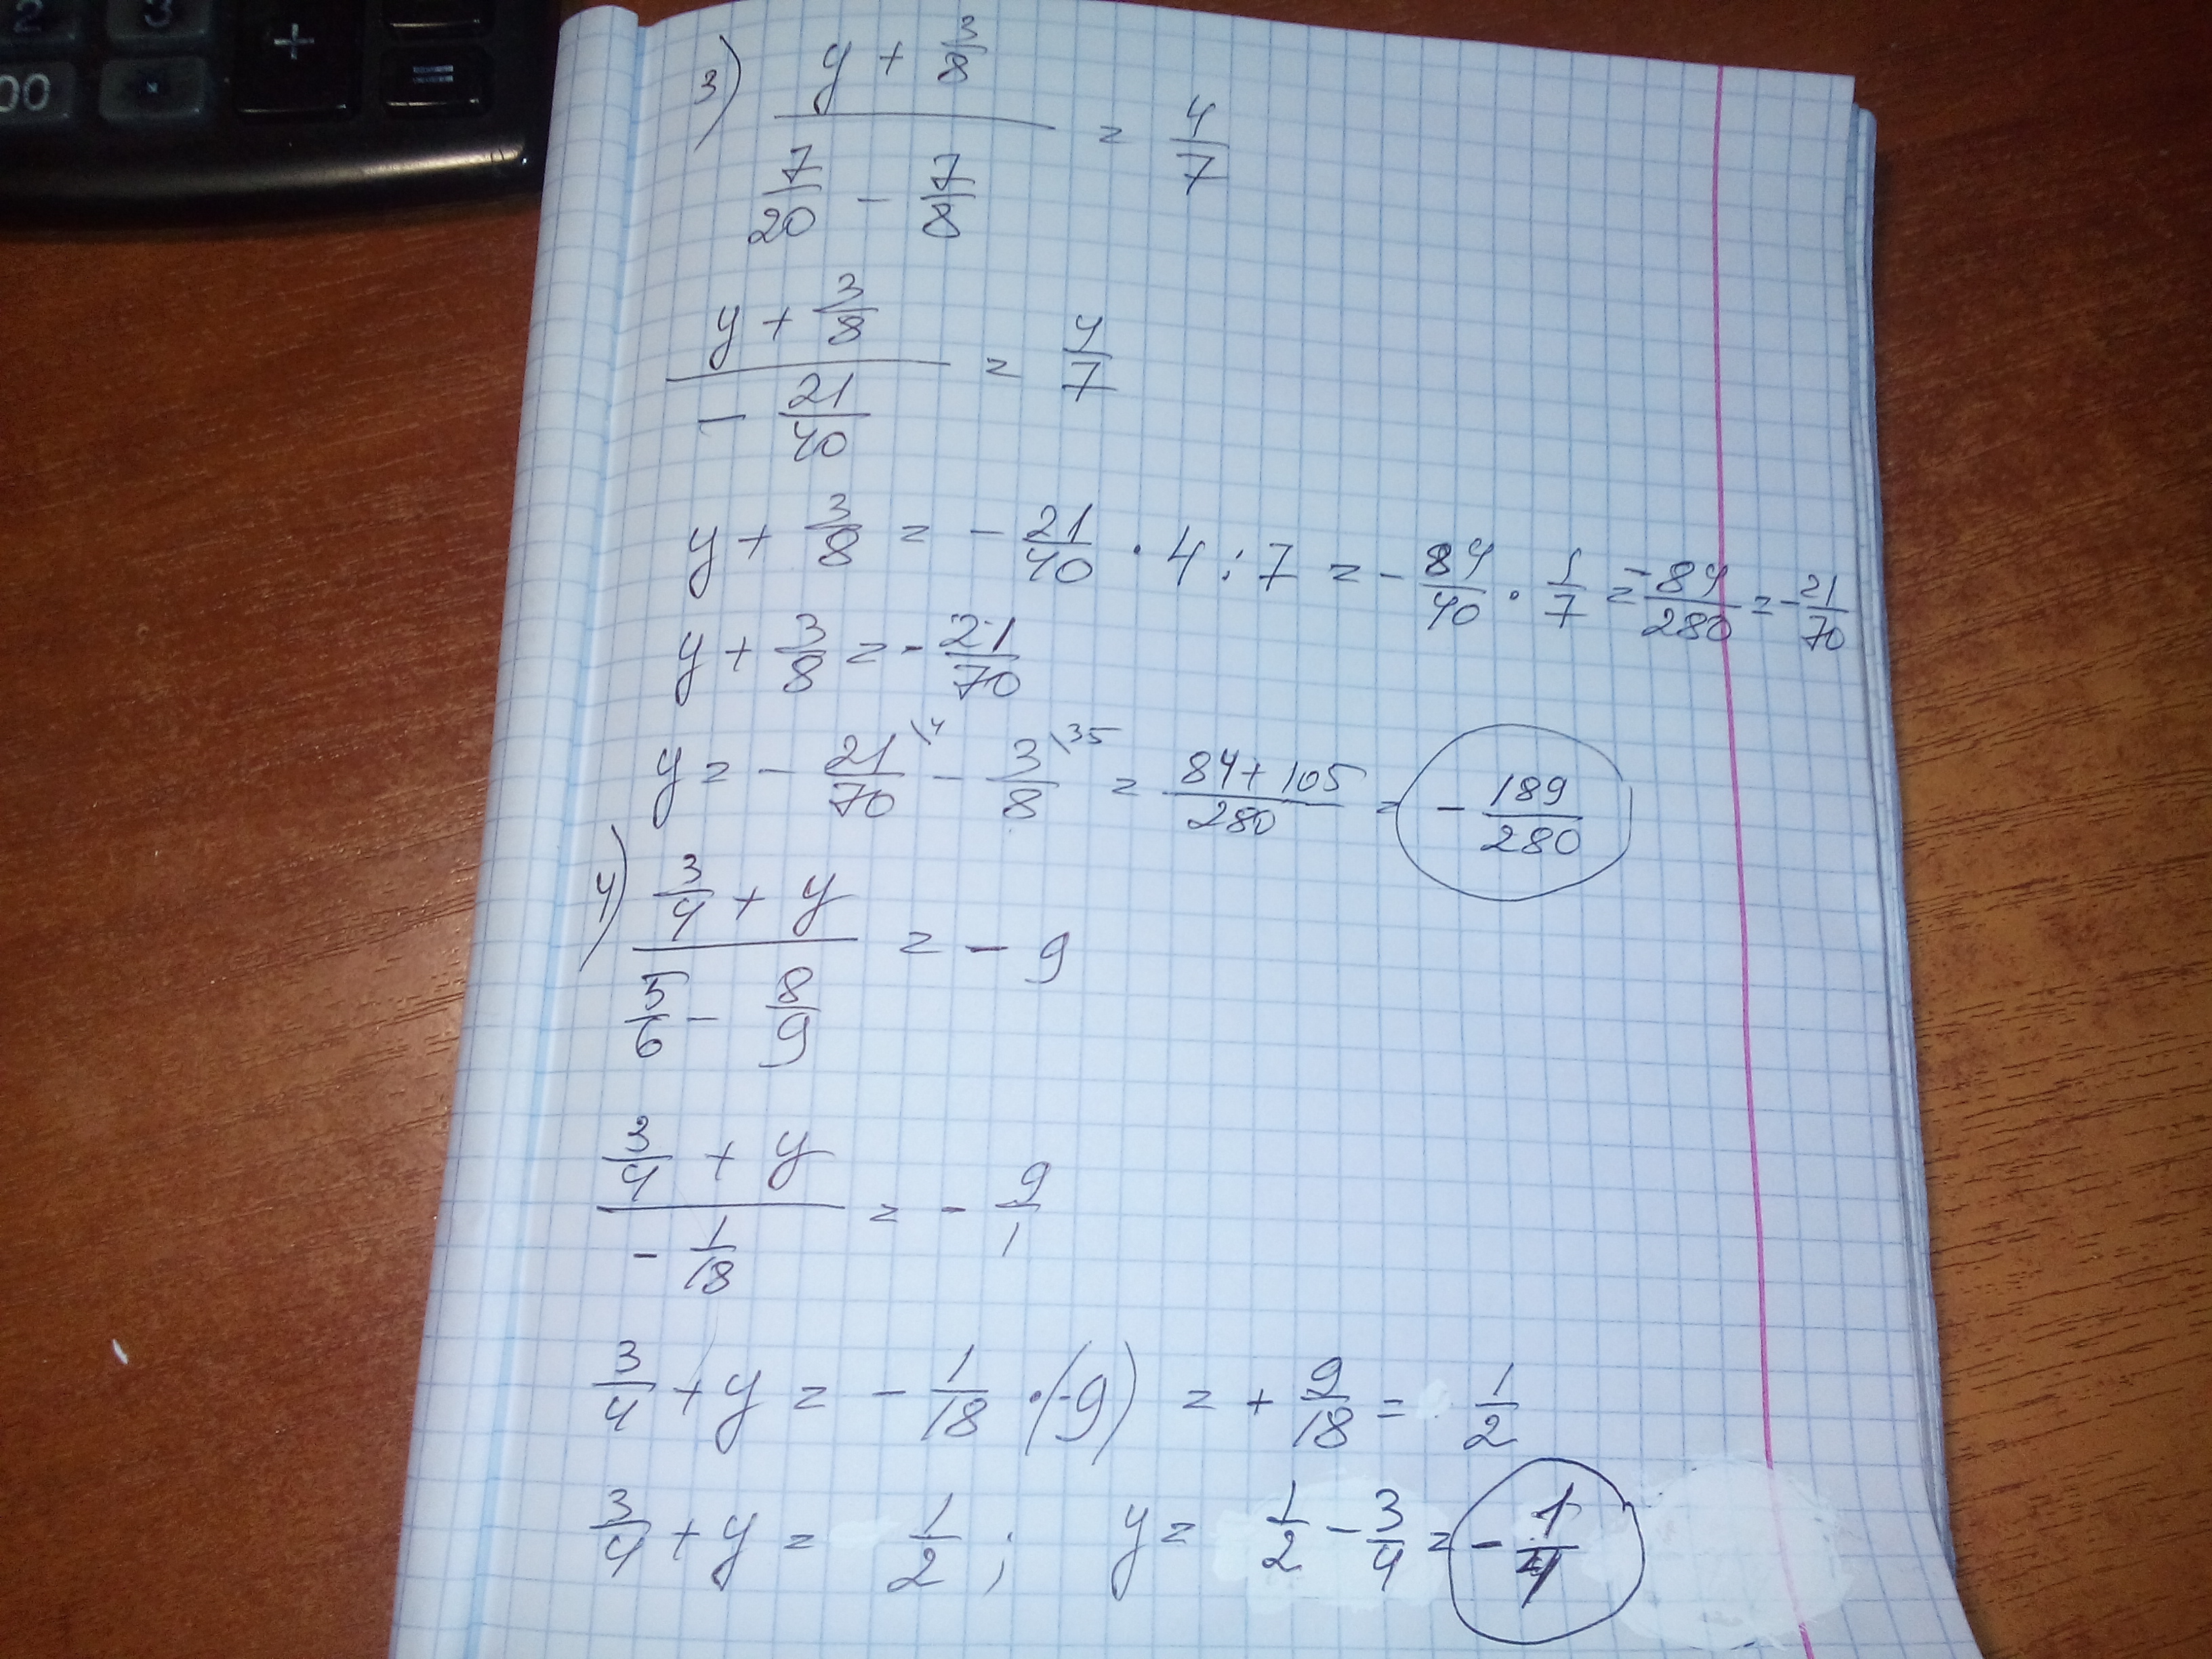 2 3 +
00 · =
3) (y + 3/8) / (7/20 - 7/8) = 4/7
(y + 3/8) / (- 21/40) = 4/7
y + 3/8 = - 21/40 · 4 : 7 = - 84/40 · 1/7 = - 84/280 = - 21/70
y + 3/8 = - 21/70
y = - 21/70 \4 - 3/8 \35 = (84 + 105)/280 = - 189/280
4) (3/4 + y) / (5/6 - 8/9) = - 9
(3/4 + y) / (- 1/18) = - 9/1
3/4 + y = - 1/18 · (-9) = + 9/18 = 1/2
3/4 + y = 1/2 ; y = 1/2 - 3/4 = - 1/4